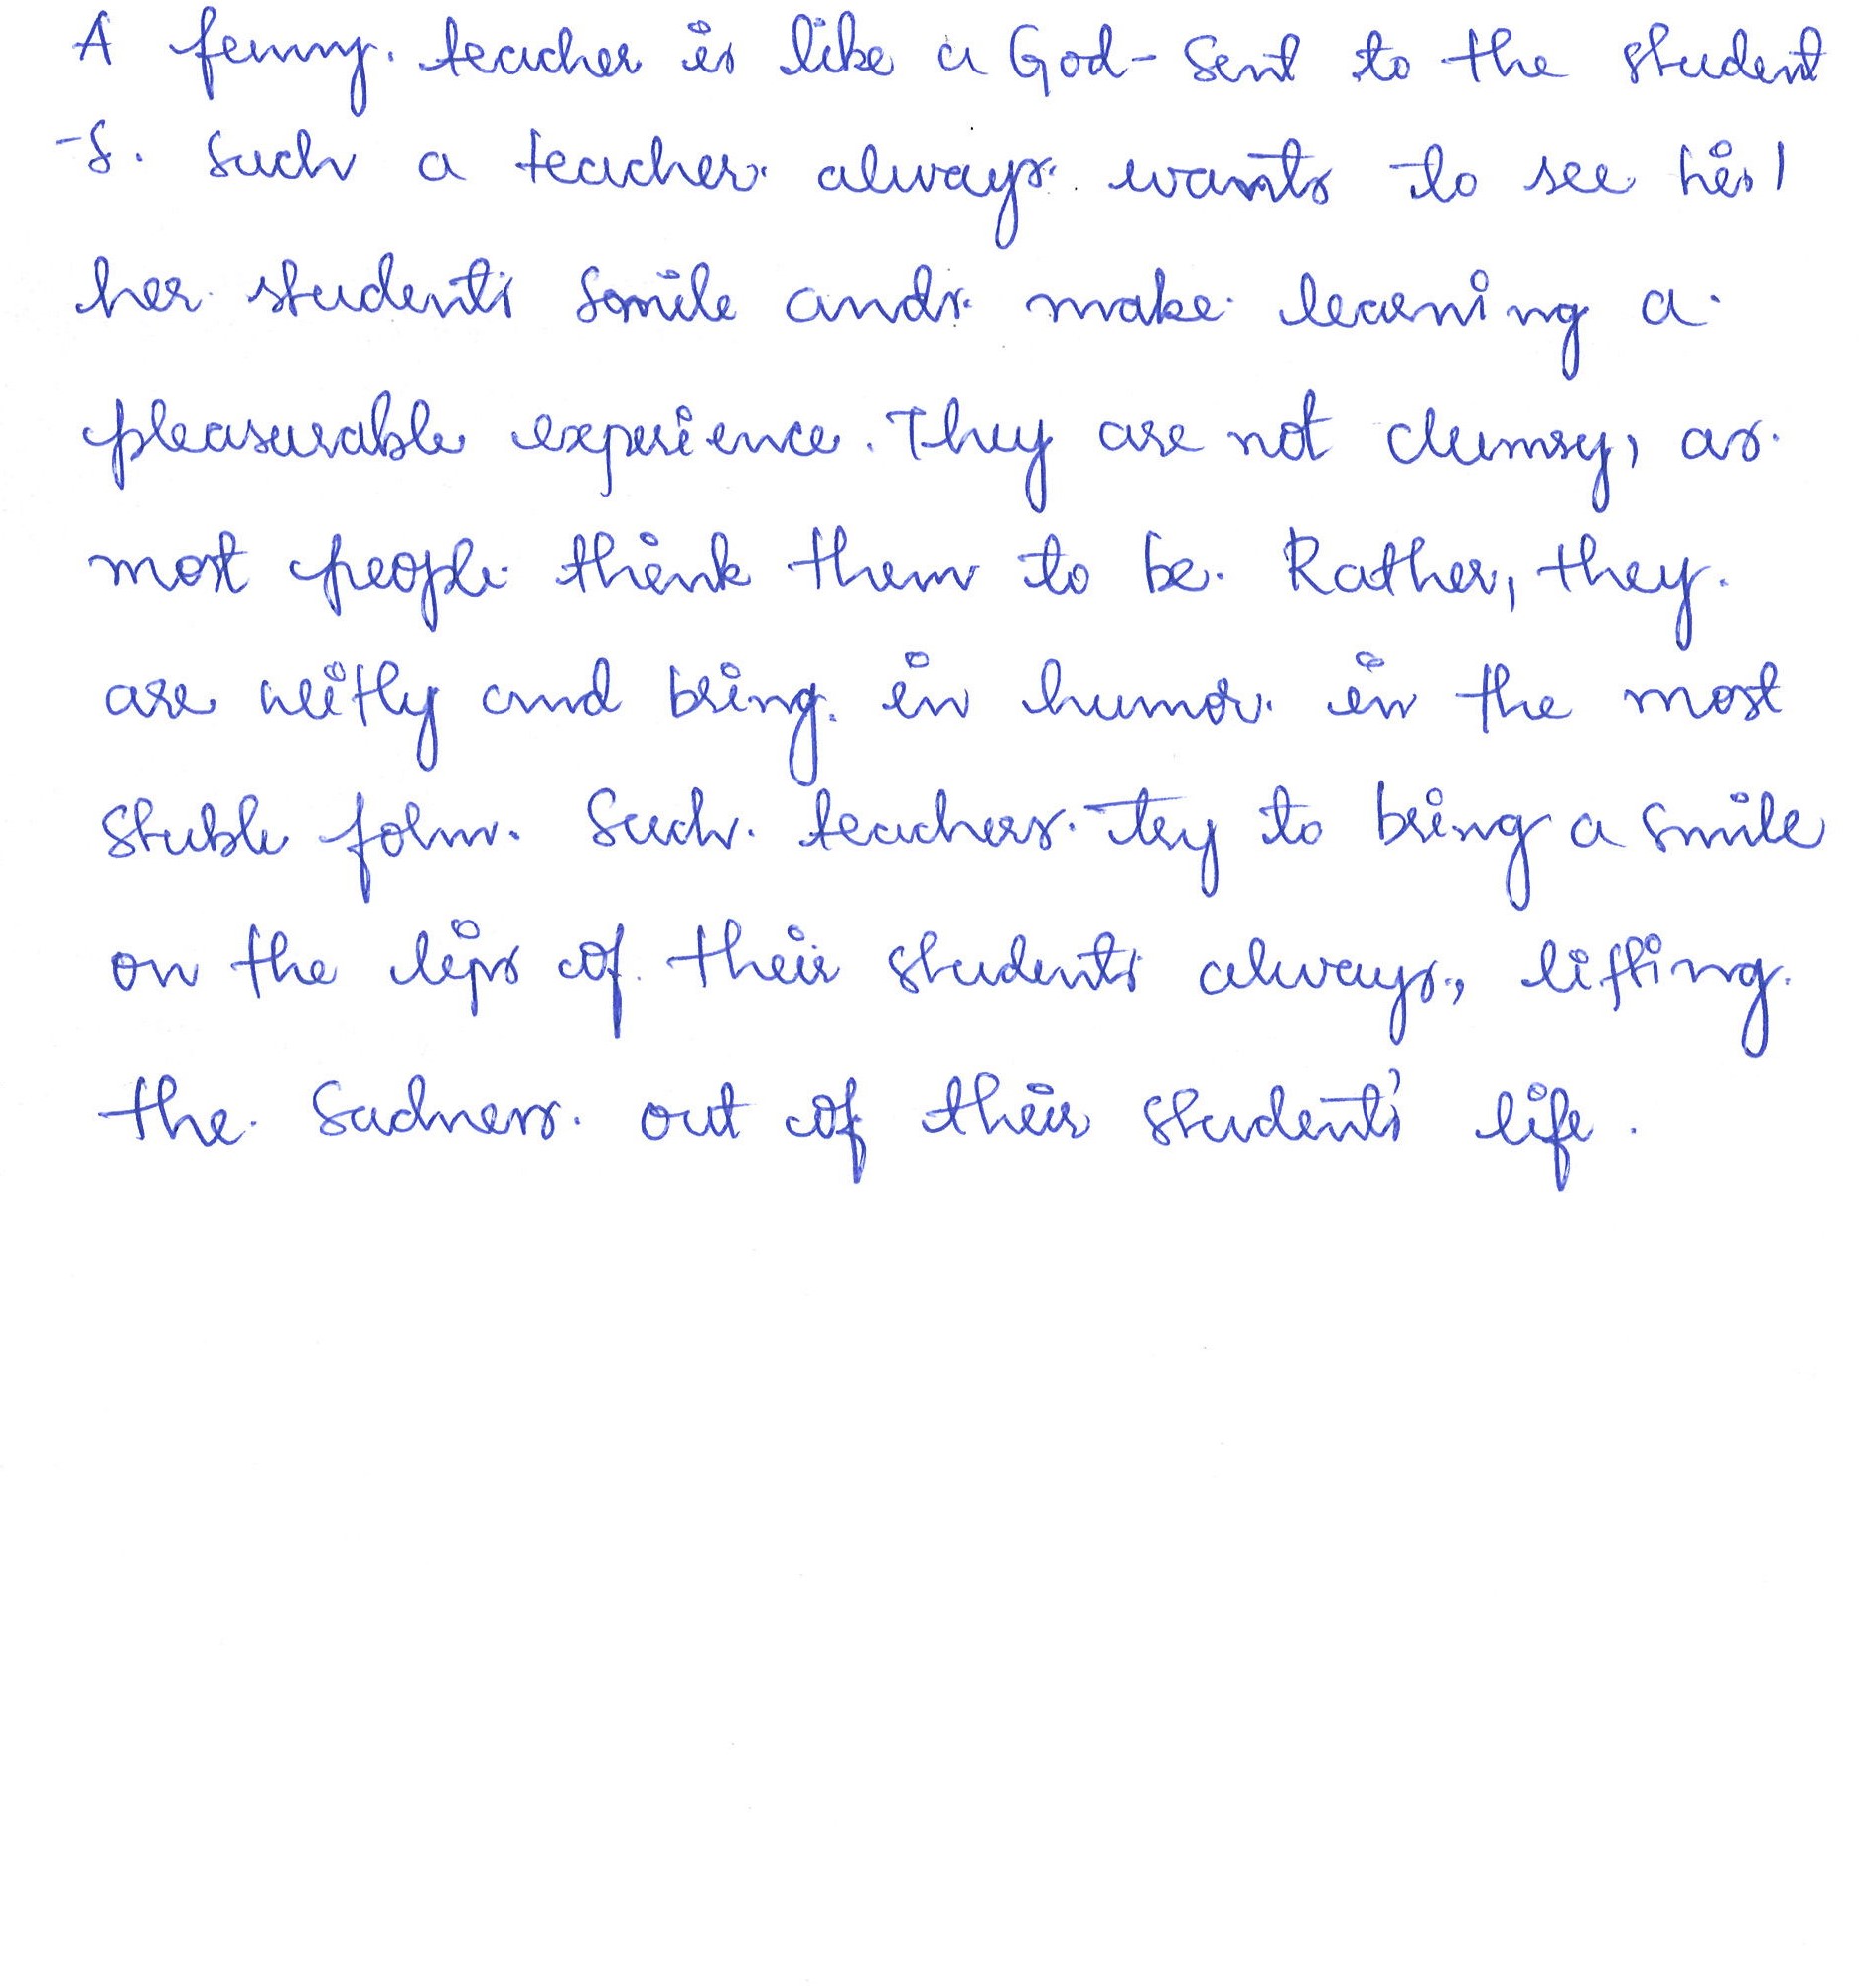 A funny teacher is like a God-Sent to the student
-s. Such a teacher always wants to see his/
her students smile and make learning a
pleasurable experience. They are not clumsy, as
most people think them to be. Rather, they
are witty and bring in humor in the most
stuble form. Such teachers try to bring a smile
on the lips of their students always, lifting
the sadness out of their students' life.